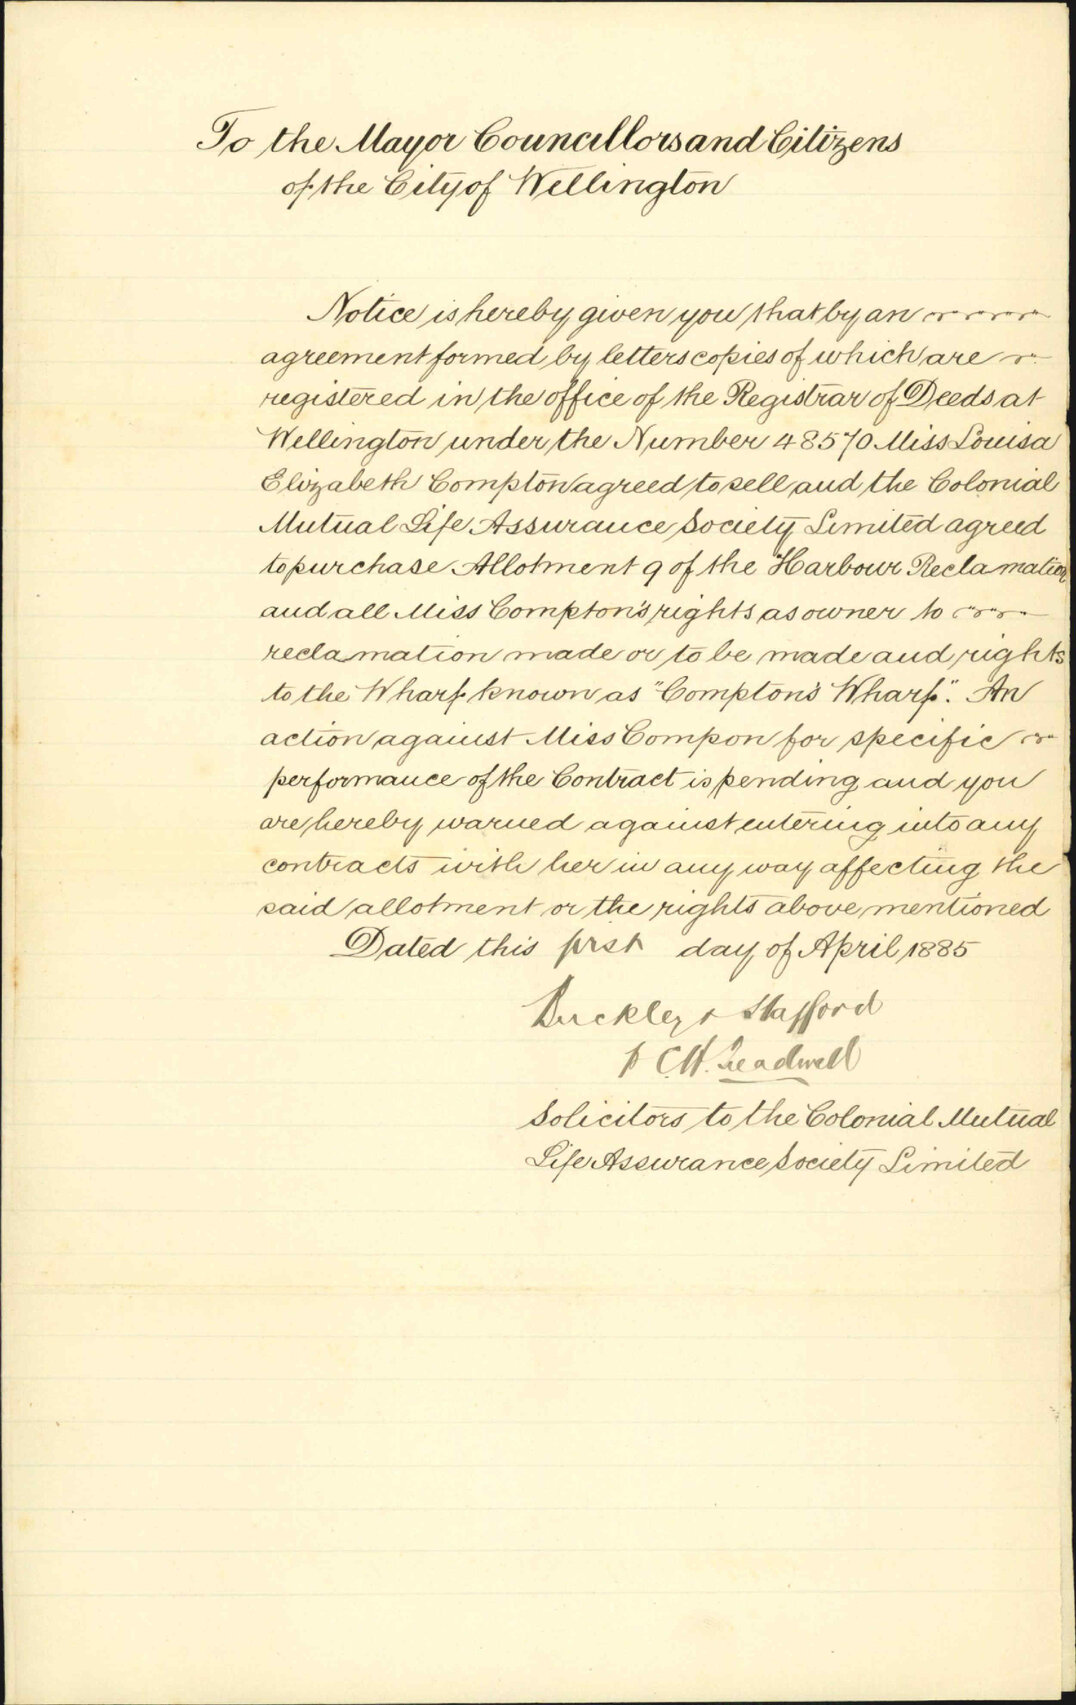 To the Mayor Councillors and Citizens
of the City of Wellington
Notice is hereby given you that by an
agreement formed by letters copies of which are
registered in the office of the Registrar of Deeds at
Wellington under the Number 48570 Miss Louisa
Elizabeth Compton agreed to sell and the Colonial
Mutual Life Assurance Society Limited agreed
to purchase Allotment 9 of the Harbour Reclamation
and all Miss Compton's rights as owner to
reclamation made or to be made and rights
to the Wharf known as "Compton's Wharf". An
action against Miss Compon for specific
performance of the Contract is pending and you
are hereby warned against entering into any
contracts with her in any way affecting the
said allotment or the rights above mentioned
Dated this first day of April 1885
Buckley & Stafford
C.H. Treadwell
Solicitors to the Colonial Mutual
Life Assurance Society Limited